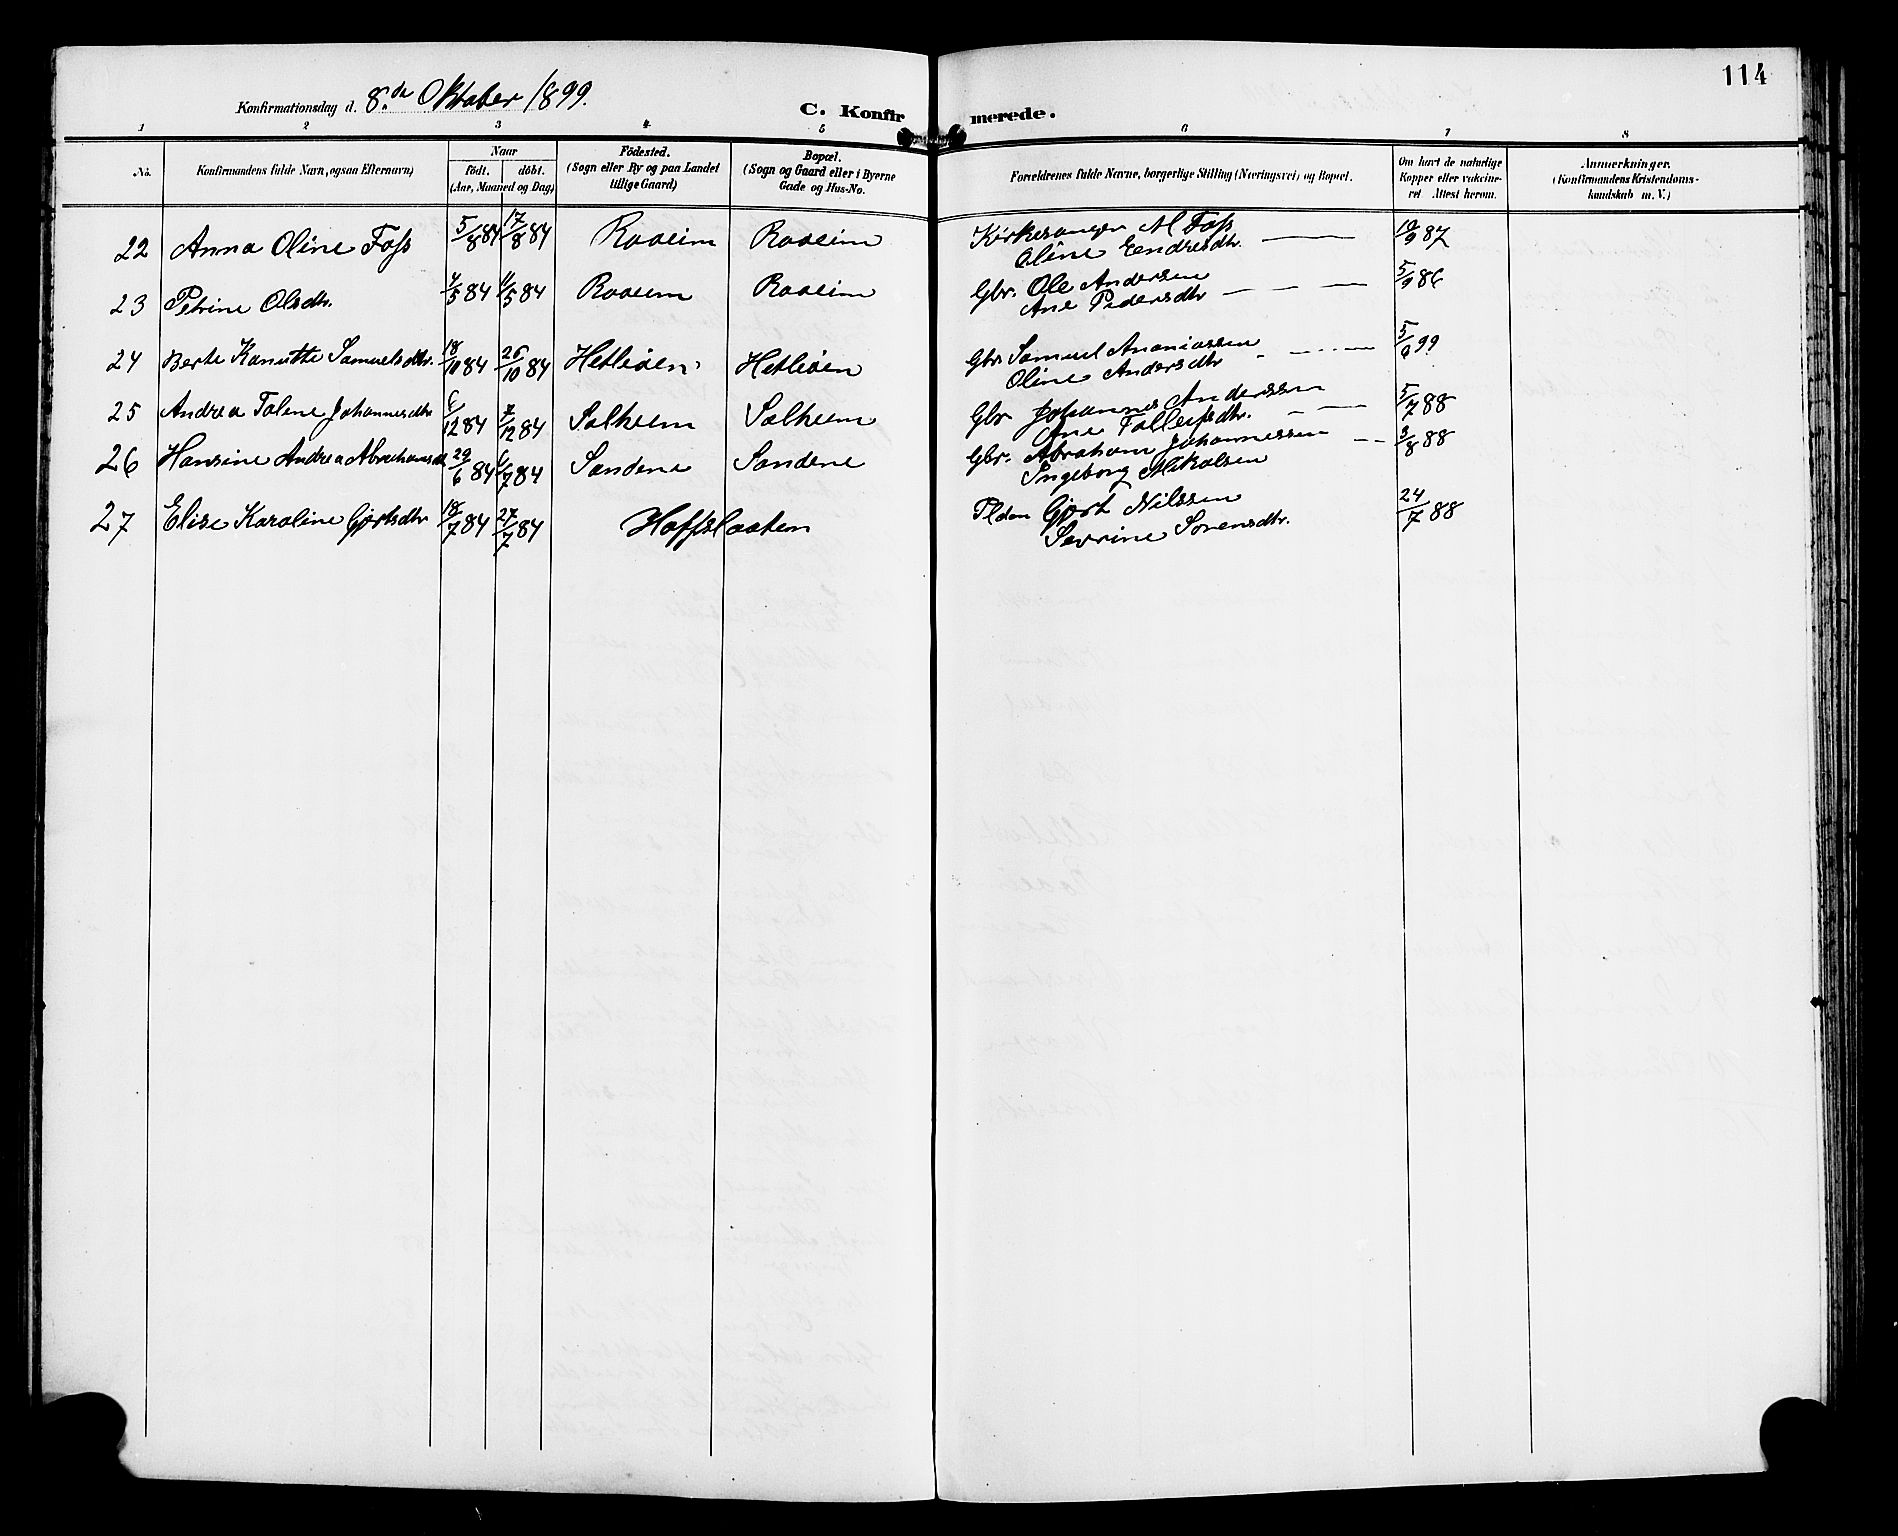 114
Konfirmationsdag d. 8.de Oktober 1899.
C. Konfirmerede.
1 2 3 4 5 6 7 8
No.
Konfirmandens fulde Navn, ogsaa Efternavn)
Naar
födt. döbt.
(Aar, Maaned og Dag)
Födested.
(Sogn eller By og paa Landet
tillige Gaard)
Bopæl.
(Sogn og Gaard eller i Byerne
Gade og Hus-No.
Forældrenes fulde Navne, borgerlige Stilling (Næringsvei) og Bopæl.
Om havt de naturlige
Kopper eller vakcine-
ret Attest herom.
Anmærkninger.
(Konfirmandens Kristendoms-
kundskab m. V.)
22 Anna Oline Foss 5/8 84 17/8 84 Raaeim Raaeim Kirkesanger M Foss 19/9 87
Oline Eendresdtr.
23 Petrine Olsdtr. 4/5 84 11/5 84 Raaeim Raaeim Gbr. Ole Andersen 5/9 86
Ane Pedersdtr
24 Berte Kanutte Samuelsdtr. 18/10 84 26/10 84 Hetleøen Hetleøen Gbr. Samuel Ananiassen 5/9 99
Oline Andersdtr
25 Andrea Talene Johannesdtr 6/12 84 7/12 84 Solheim Solheim Gbr Johannes Anderssen 5/7 88
Ane Tolleifsdtr.
26 Hansine Andrea Abrahamsdtr 29/6 84 6/7 84 Sandene Sandene Gbr. Abraham Johannessen 3/8 88
Ingeborg Mikalsen
27 Elise Karoline Gjertsdtr 18/7 84 27/7 84 Hoffslaatten Pldm Gjert Nilssen 24/7 88
Sevrine Sorensdtr.